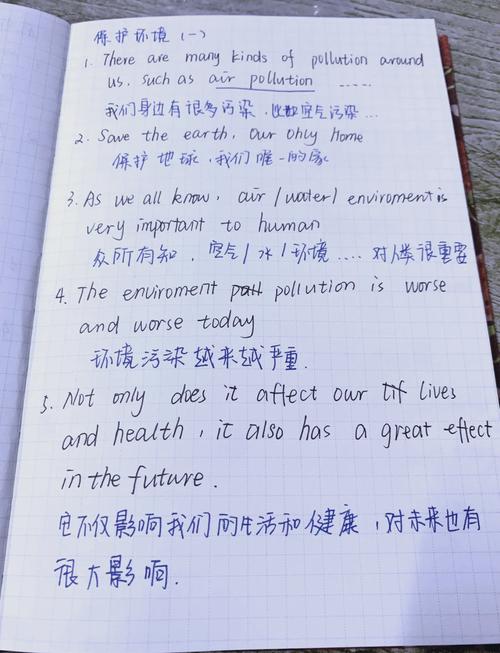 保护环境 (一)
1. There are many kinds of pollution around
us, such as air pollution .....
我们身边有很多污染，比如空气污染...
2. Save the earth, Our only home
保护地球，我们唯一的家
3. As we all know, air /water/ enviroment is
very important to human
众所有知，空气/水/环境....对人类很重要
4. The enviroment pall pollution is worse
and worse today
环境污染越来越严重.
5. Not only does it affect our lif lives
and health, it also has a great effect
in the future.
它不仅影响我们的生活和健康，对未来也有
很大影响.